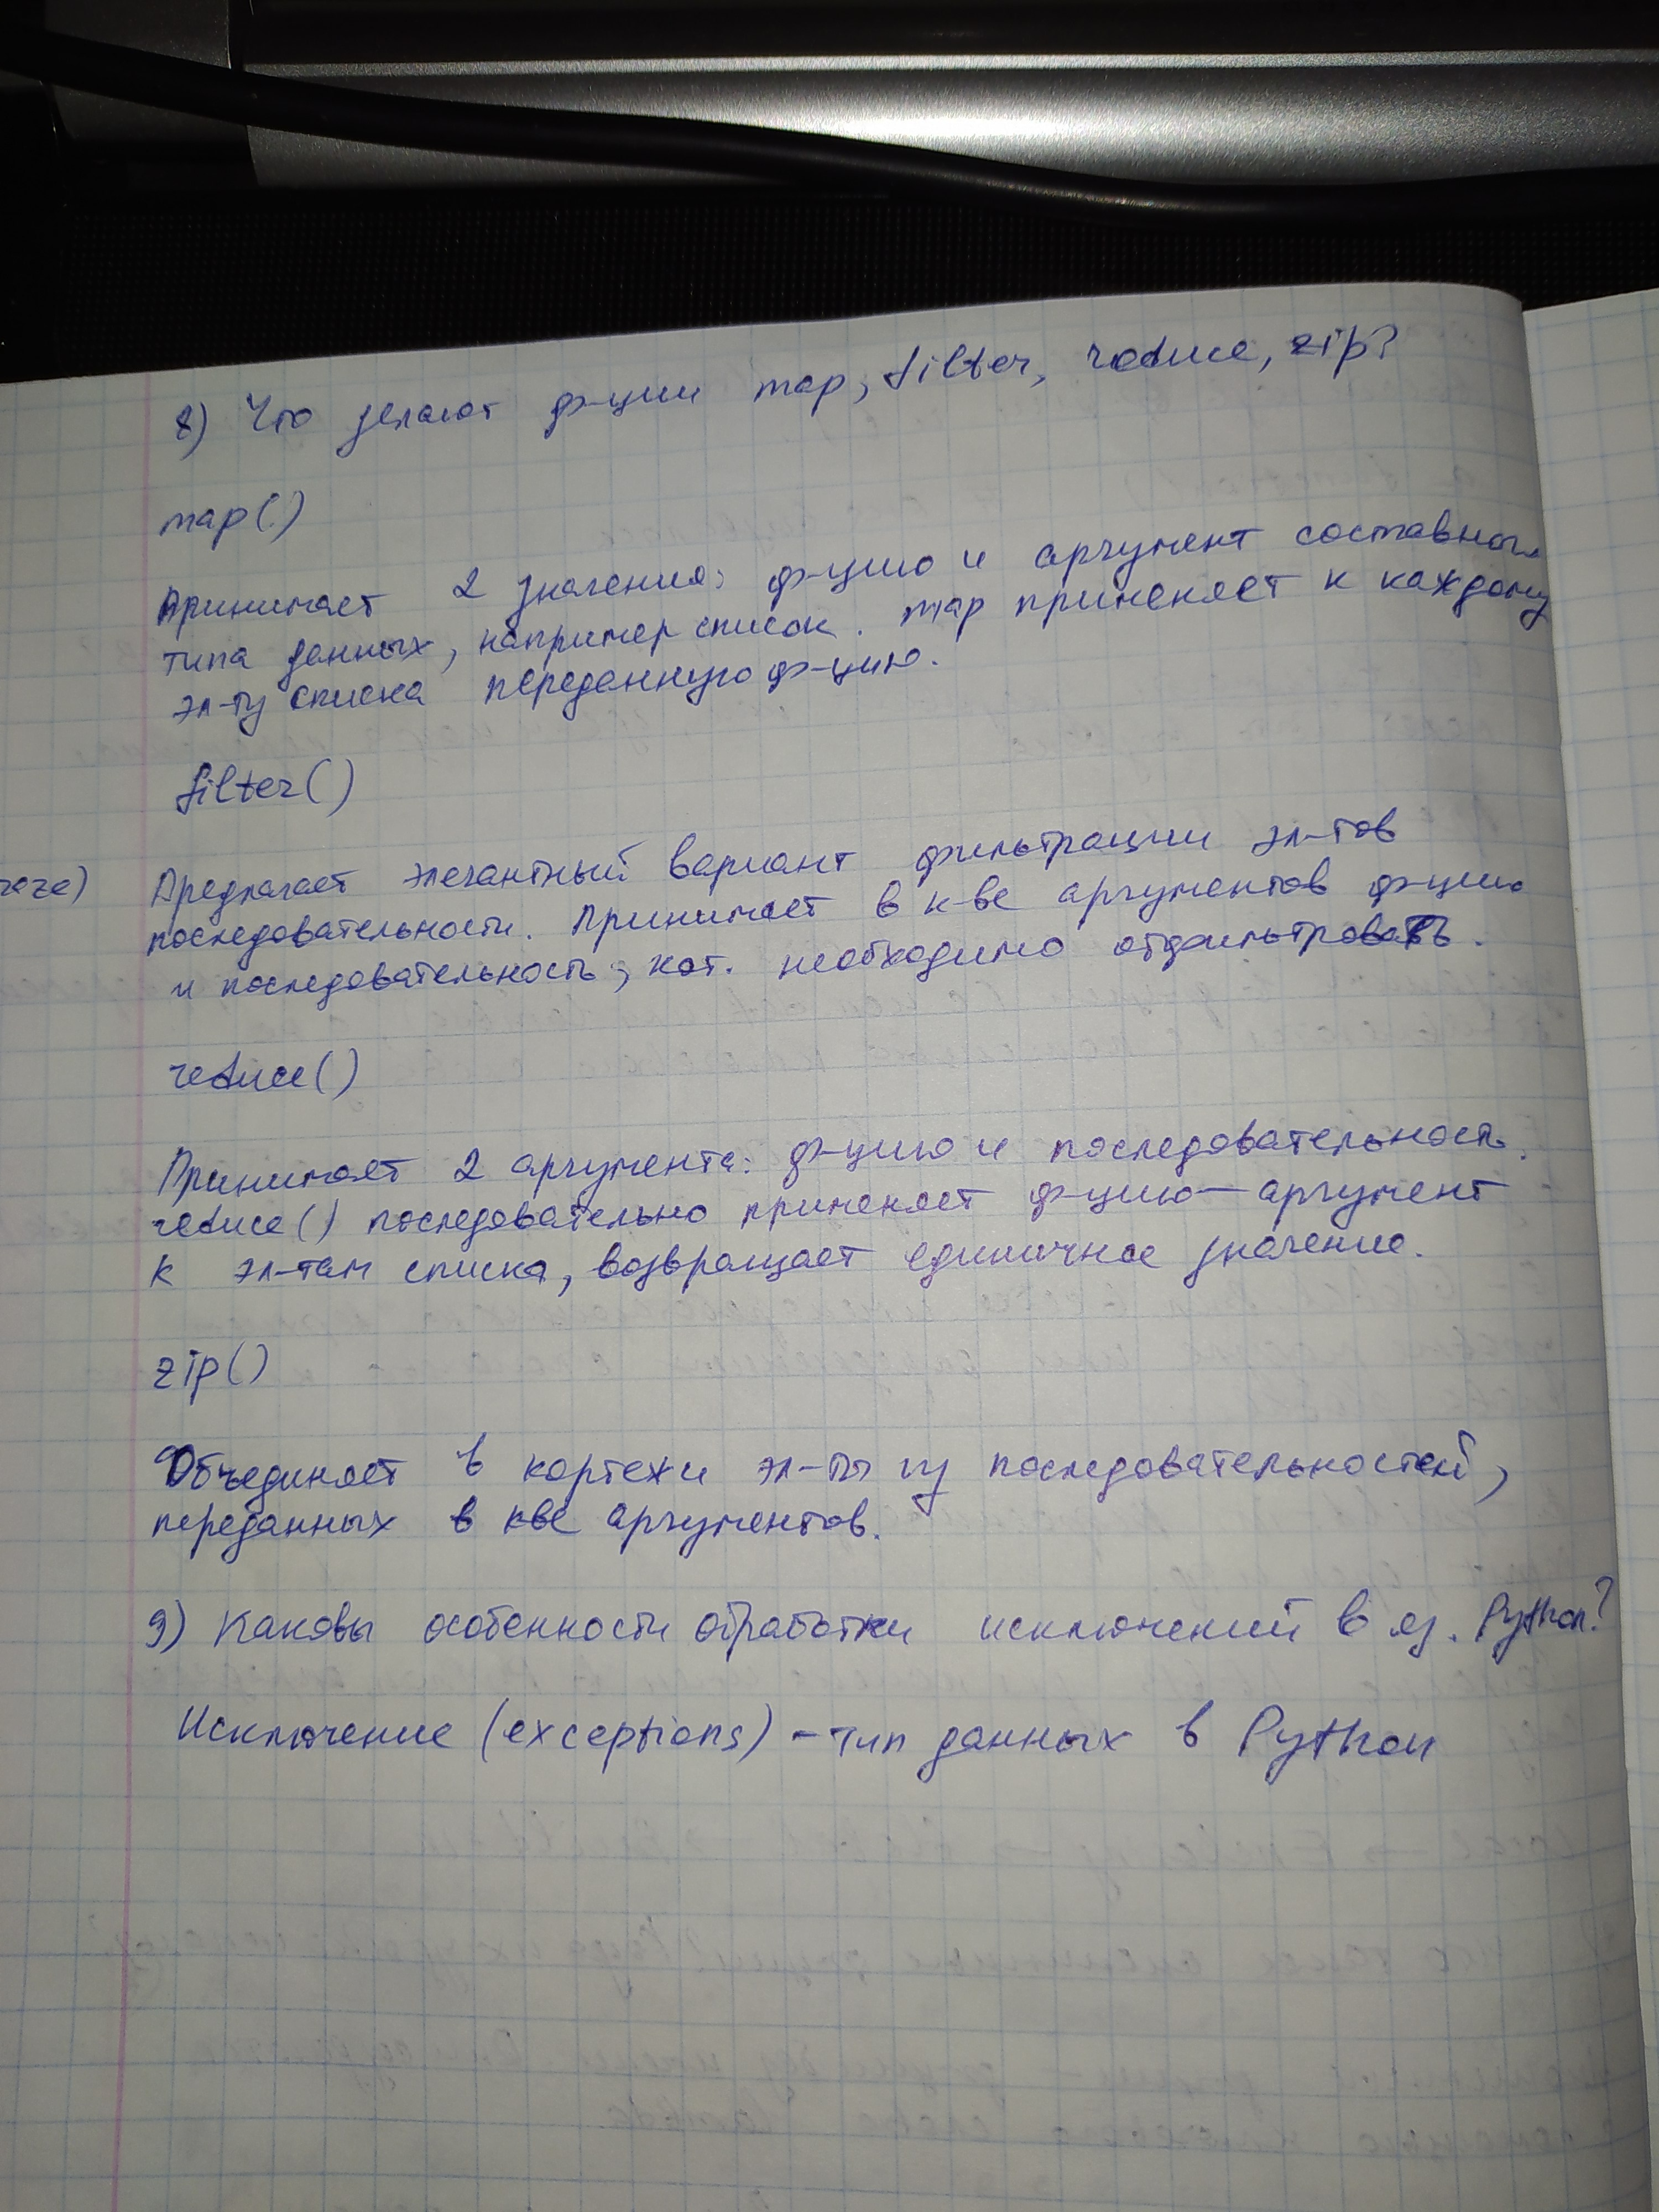 8) Что делают ф-ции map, filter, reduce, zip?
map()
Принимает 2 значения: ф-цию и аргумент составного
типа данных, например список. map применяет к каждому
эл-ту списка переданную ф-цию.
filter()
Предлагает элегантный вариант фильтрации эл-тов
последовательности. Принимает в к-ве аргументов ф-цию
и последовательность, кот. необходимо отфильтровать.
reduce()
Принимает 2 аргумента: ф-цию и последовательность.
reduce() последовательно применяет ф-цию-аргумент
к эл-там списка, возвращает единичное значение.
zip()
Объединяет в кортежи эл-ты из последовательностей,
переданных в кве аргументов.
9) Каковы особенности обработки исключений в яз. Python?
Исключение (exceptions) - тип данных в Python